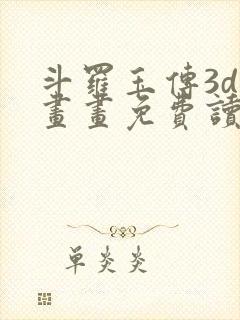 斗羅玉傳3d
畫畫免費讀
單炎炎